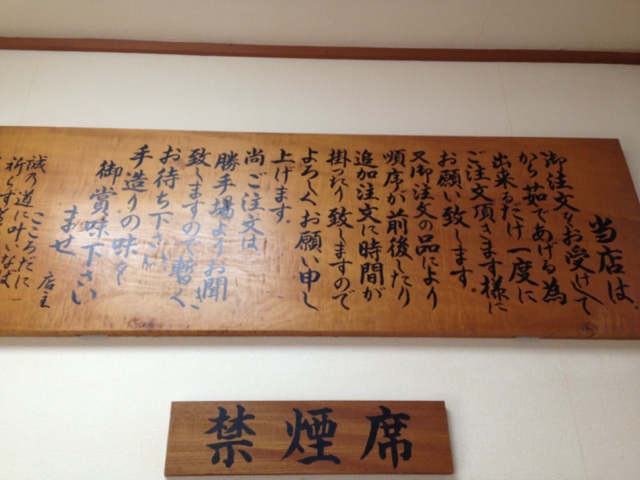 当店は、
御注文をお受けして
から茹であげる為
出来るだけ一度に
ご注文頂きます様に
お願い致します。
又御注文の品により
順序が前後したり
追加注文に時間が
掛ったり致しますので
よろしくお願い申し
上げます。
尚ご注文は
勝手場よりお聞き
致しますので暫く
お待ち下さい
手造りの味を
御賞味下さい
ませ
店主
こころだに
誠の道に叶いなば
祈らずと
禁煙席